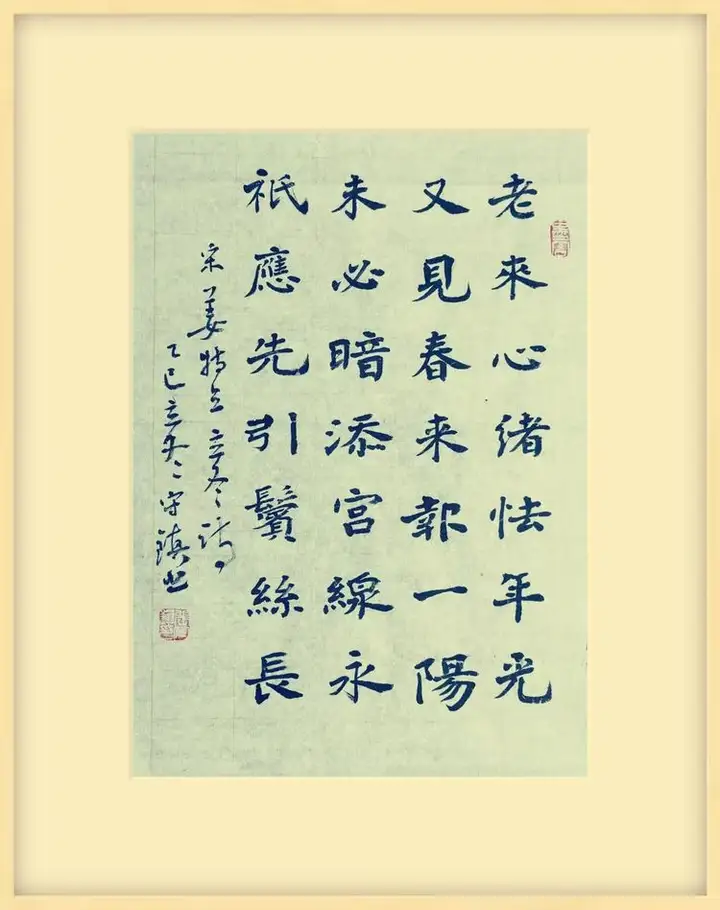 老來心緒怯年光
又見春来報一陽
未必暗添宮線永
祇應先引鬢絲長
宋姜特立立冬詩
乙巳立冬守鎮书